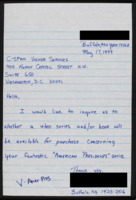 May 17, 1999
C-SPAN Viewer Services
400 North Capitol Street N.W.
Suite 650
Washington, D.C. 20001
Hello,
I would like to inquire as to
whether a video series and/or book will
be available for purchase concerning
your fantastic "American Presidents" series.
Thank you,
Buffalo, NY 14223-2516